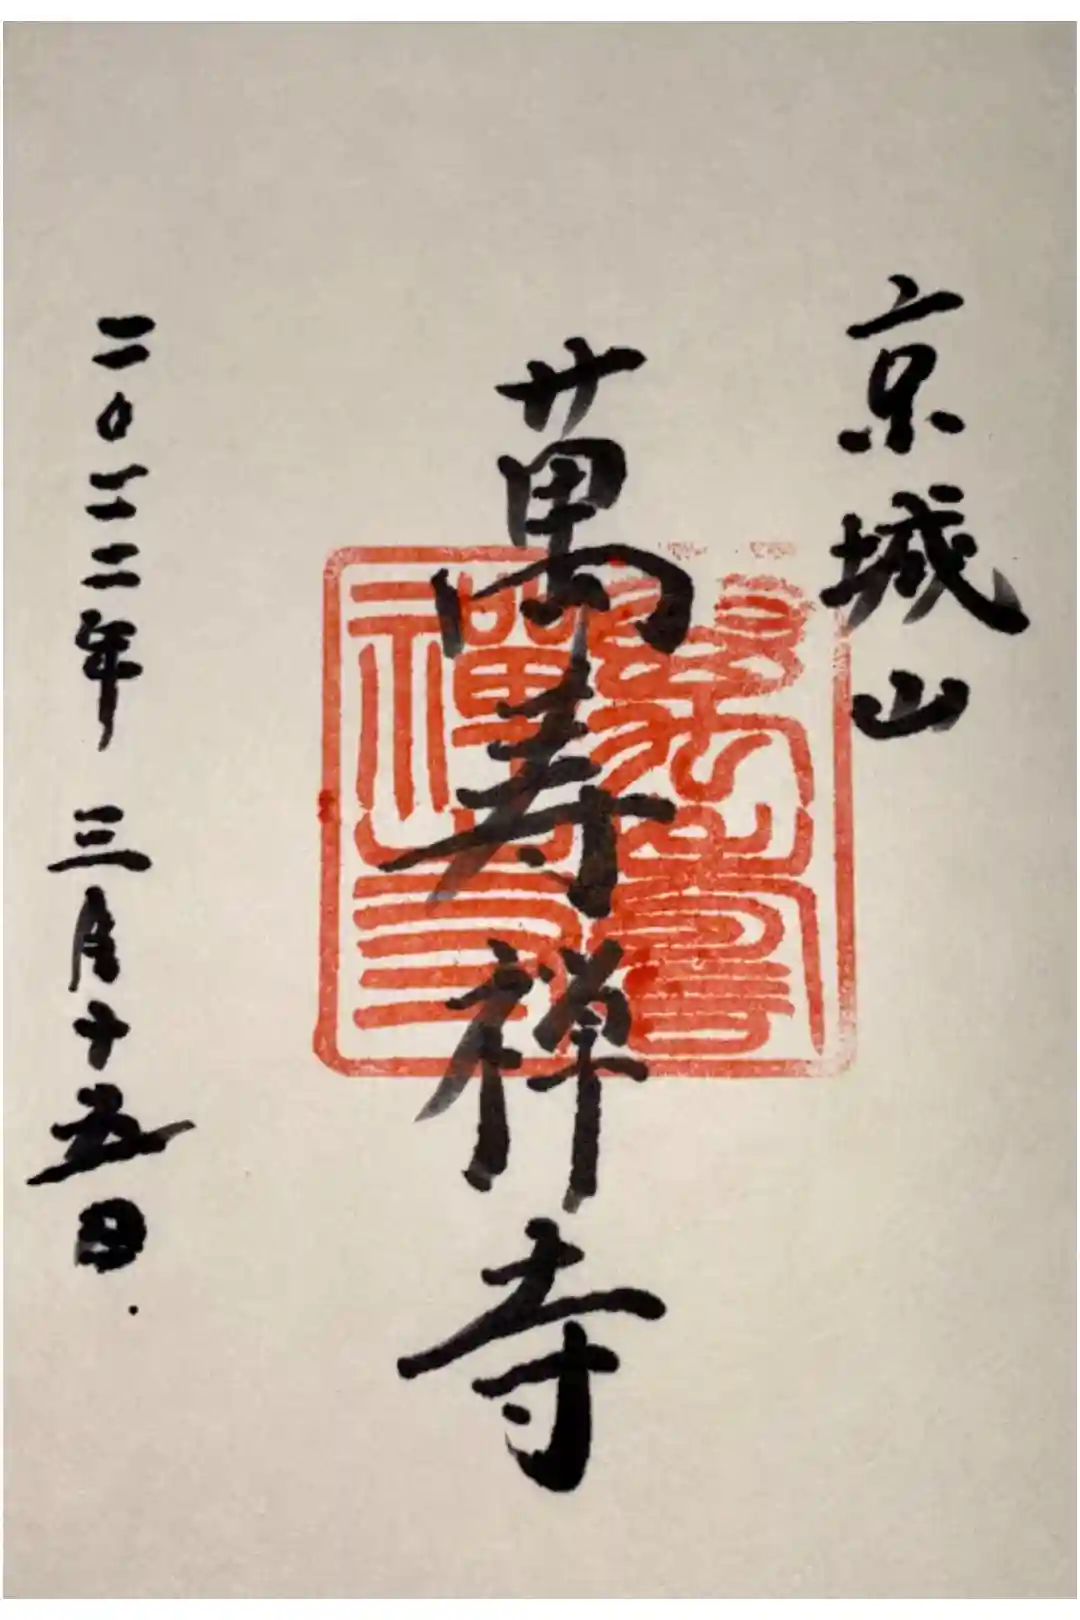 京城山
萬寿禅寺
二〇二二年三月十五日
萬壽禪寺